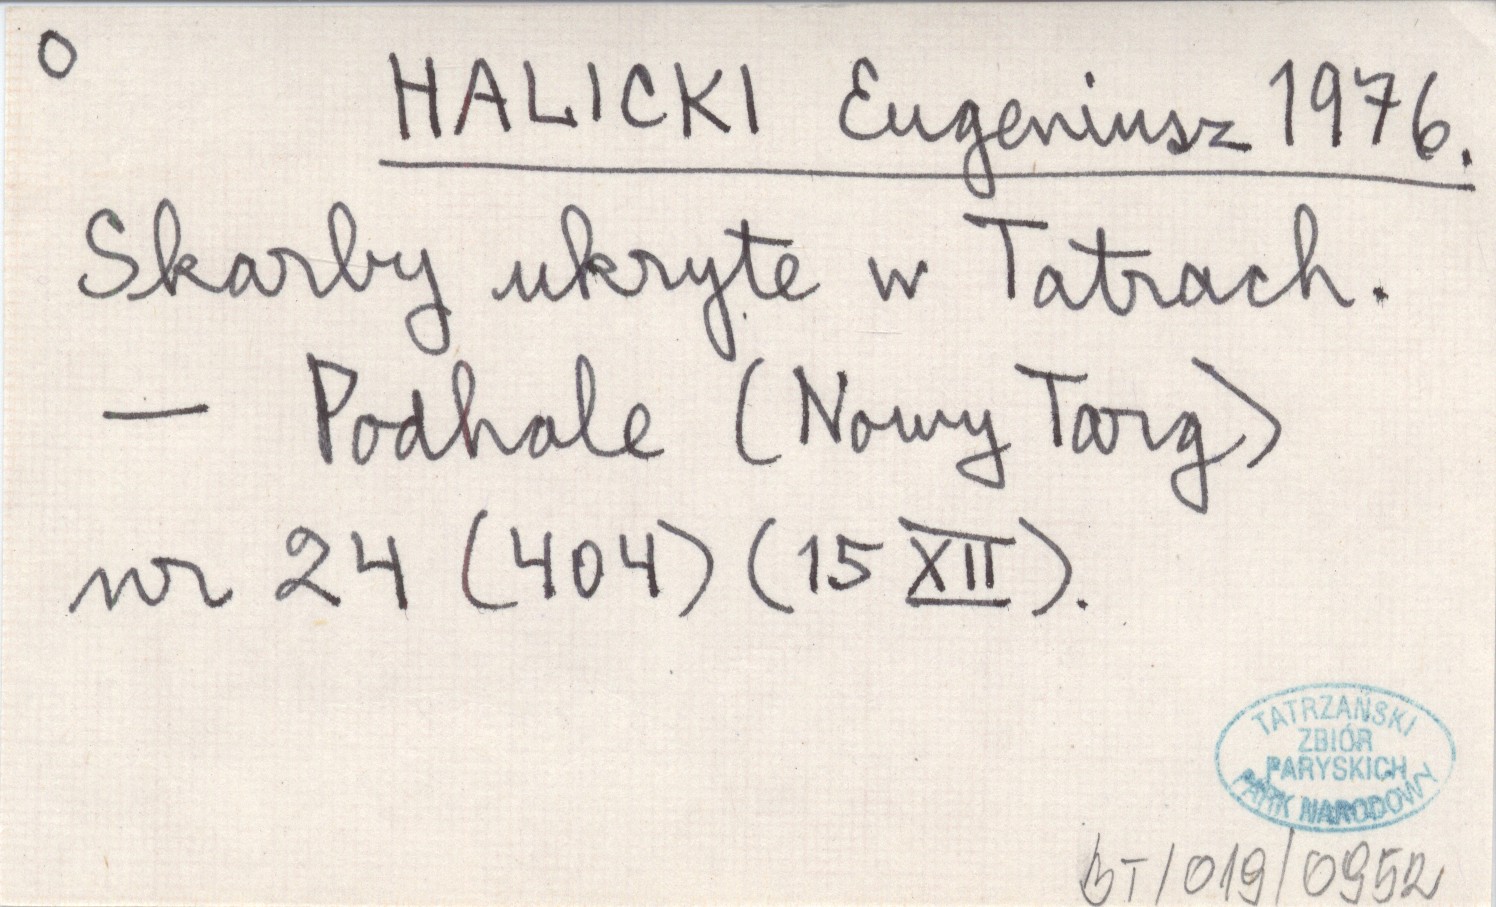 O
HALICKI Eugeniusz 1976.
Skarby ukryte w Tatrach.
— Podhale (Nowy Targ)
nr 24 (404) (15 XII).
TATRZAŃSKI
ZBIÓR
PARYSKICH
PARK NARODOWY
BT/019/0952